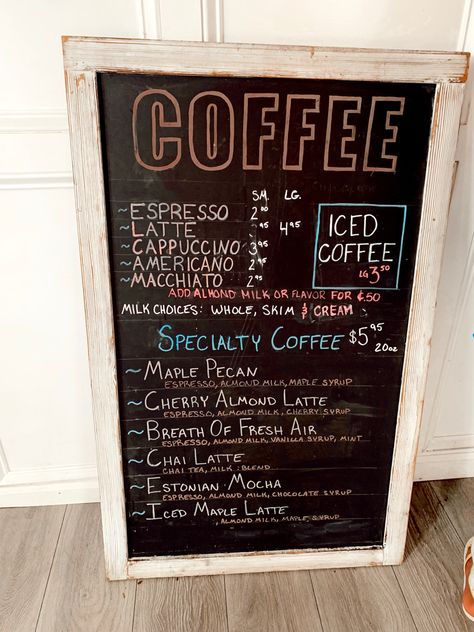 COFFEE
SM. LG.
~ESPRESSO 2.00
~LATTE .95 4.95
~CAPPUCCINO 3.95
~AMERICANO 2.95
~MACCHIATO 2.95
ICED
COFFEE
LG 3.50
ADD ALMOND MILK OR FLAVOR FOR ¢.50
MILK CHOICES: WHOLE, SKIM & CREAM
SPECIALTY COFFEE $5.95
20oz
~MAPLE PECAN
ESPRESSO, ALMOND MILK, MAPLE SYRUP
~CHERRY ALMOND LATTE
ESPRESSO, ALMOND MILK, CHERRY SYRUP
~BREATH OF FRESH AIR
ESPRESSO, ALMOND MILK, VANILLA SYRUP, MINT
~CHAI LATTE
CHAI TEA, MILK BLEND
~ESTONIAN MOCHA
ESPRESSO, ALMOND MILK, CHOCOLATE SYRUP
~ICED MAPLE LATTE
, ALMOND MILK, MAPLE SYRUP